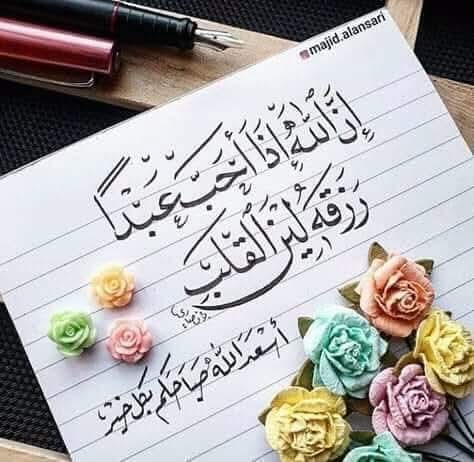 majid.alansari
إنَّ اللهَ إذَا أَحَبَّ عَبْدًا
رَزَقَهُ لِيْنَ القَلْبِ
أسْعَدَ اللهُ صَبَاحَكُم بِكُلِّ خَيْر